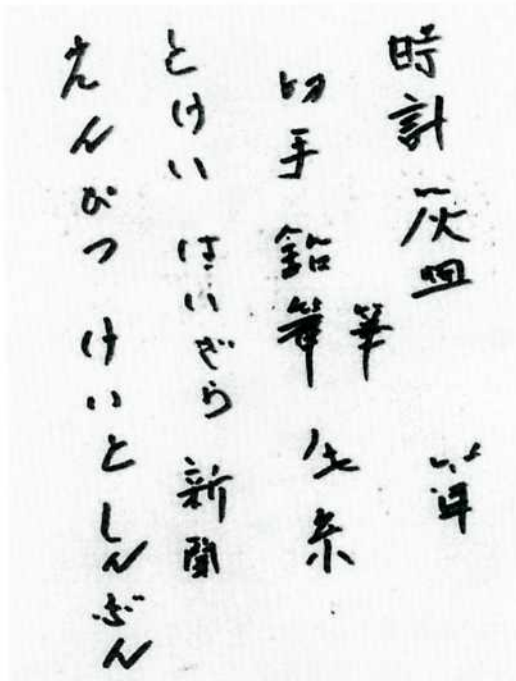 時計 灰皿
切手 鉛筆 糸
とけい はいざら 新聞
えんぴつ けいと しんぶん